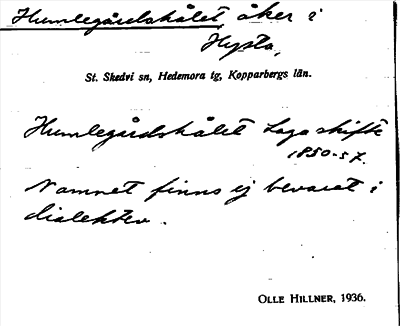 Humlegårdshålet, åker i
Hysta,
St. Skedvi sn, Hedemora tg, Kopparbergs län.
Humlegårdshålet Laga skifte
1850-57.
Namnet finns ej bevarat i
dialekten.
OLLE HILLNER, 1936.